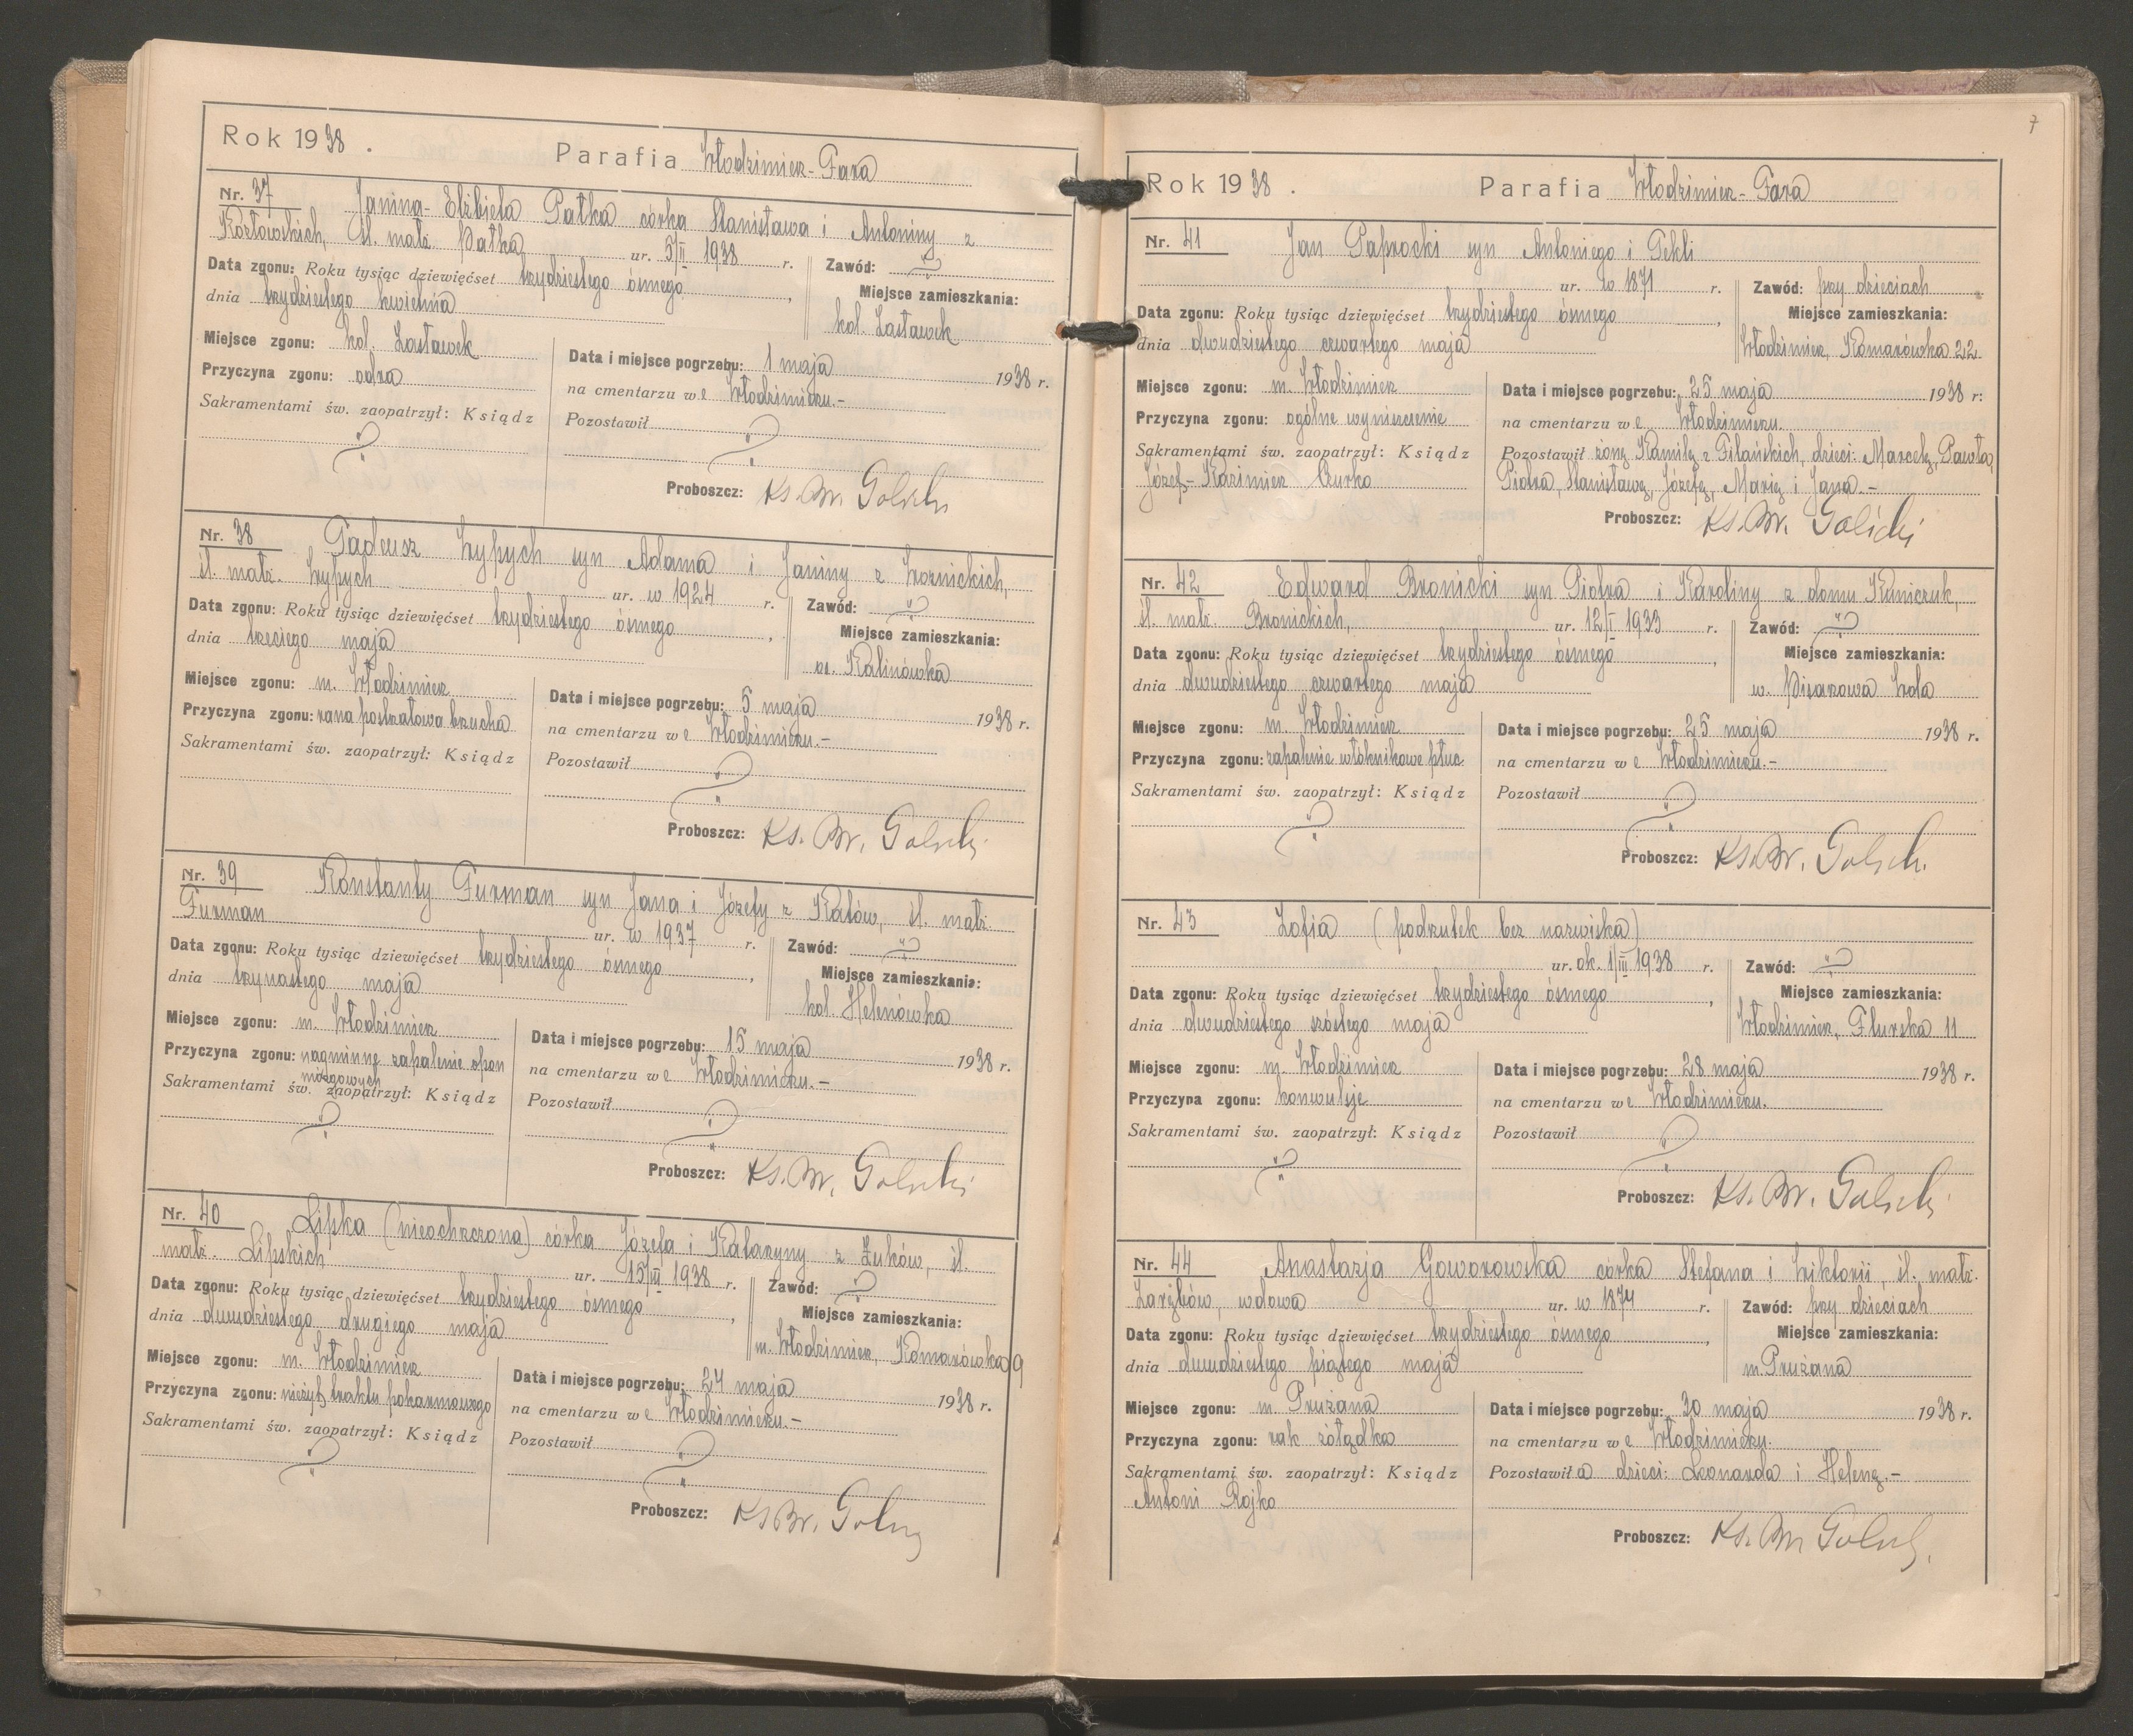 Rok 1938.
Parafia Włodzimierz-Fara
Nr. 37 Janina-Elżbieta Pałka córka Stanisława i Antoniny z
Kozłowskich, śl. małż. Pałka ur. 5/II 1938 r.
Zawód:
Data zgonu: Roku tysiąc dziewięćset trzydziestego ósmego,
dnia trzydziestego kwietnia
Miejsce zamieszkania:
kol. Zastawek
Miejsce zgonu: kol. Zastawek
Przyczyna zgonu: odra
Sakramentami św. zaopatrzył: Ksiądz
Data i miejsce pogrzebu: 1 maja 1938 r.
na cmentarzu we Włodzimierzu.-
Pozostawił
Proboszcz: Ks. Br. Galicki
Nr. 38 Tadeusz Wypych syn Adama i Janiny z Woźnickich,
śl. małż. Wypych ur. w 1924 r.
Zawód:
Data zgonu: Roku tysiąc dziewięćset trzydziestego ósmego,
dnia trzeciego maja
Miejsce zamieszkania:
os. Kalinówka
Miejsce zgonu: m. Włodzimierz
Przyczyna zgonu: rana postrzałowa brzucha
Sakramentami św. zaopatrzył: Ksiądz
Data i miejsce pogrzebu: 5 maja 1938 r.
na cmentarzu we Włodzimierzu.-
Pozostawił
Proboszcz: Ks. Br. Galicki
Nr. 39 Konstanty Furman syn Jana i Józefy z Kałów, śl. małż.
Furman ur. w 1937 r.
Zawód:
Data zgonu: Roku tysiąc dziewięćset trzydziestego ósmego,
dnia trzynastego maja
Miejsce zamieszkania:
kol. Helenówka
Miejsce zgonu: m. Włodzimierz
Przyczyna zgonu: nagminne zapalenie opon
mózgowych
Sakramentami św. zaopatrzył: Ksiądz
Data i miejsce pogrzebu: 15 maja 1938 r.
na cmentarzu we Włodzimierzu.-
Pozostawił
Proboszcz: Ks. Br. Galicki
Nr. 40 Lipska (nieochrzczona) córka Józefa i Katarzyny z Żuków, śl.
małż. Lipskich ur. 15/III 1938 r.
Zawód:
Data zgonu: Roku tysiąc dziewięćset trzydziestego ósmego,
dnia dwudziestego drugiego maja
Miejsce zamieszkania:
m. Włodzimierz, Komarówka 9
Miejsce zgonu: m. Włodzimierz
Przyczyna zgonu: nieżyt traktu pokarmowego
Sakramentami św. zaopatrzył: Ksiądz
Data i miejsce pogrzebu: 24 maja 1938 r.
na cmentarzu we Włodzimierzu.-
Pozostawił
Proboszcz: Ks. Br. Galicki
7
Rok 1938.
Parafia Włodzimierz-Fara
Nr. 41 Jan Paprocki syn Antoniego i Tekli
ur. w 1871 r.
Zawód: przy dzieciach
Data zgonu: Roku tysiąc dziewięćset trzydziestego ósmego,
dnia dwudziestego czwartego maja
Miejsce zamieszkania:
Włodzimierz, Komarówka 22
Miejsce zgonu: m. Włodzimierz
Przyczyna zgonu: ogólne wyniszczenie
Sakramentami św. zaopatrzył: Ksiądz
Józef-Kazimierz Czurko
Data i miejsce pogrzebu: 25 maja 1938 r.
na cmentarzu we Włodzimierzu.
Pozostawił żonę Kamilę z Filańskich, dzieci: Marcelę, Pawła,
Piotra, Stanisławę, Józefę, Marię i Jana.-
Proboszcz: Ks. Br. Galicki
Nr. 42 Edward Bronicki syn Piotra i Karoliny z domu Kuniczuk,
śl. małż. Bronickich, ur. 12/I 1933 r.
Zawód:
Data zgonu: Roku tysiąc dziewięćset trzydziestego ósmego,
dnia dwudziestego czwartego maja
Miejsce zamieszkania:
w. Pisarowa Wola
Miejsce zgonu: m. Włodzimierz
Przyczyna zgonu: zapalenie włóknikowe płuc
Sakramentami św. zaopatrzył: Ksiądz
Data i miejsce pogrzebu: 25 maja 1938 r.
na cmentarzu we Włodzimierzu.-
Pozostawił
Proboszcz: Ks. Br. Galicki
Nr. 43 Zofia (podrzutek bez nazwiska)
ur. ok. 1/III 1938 r.
Zawód:
Data zgonu: Roku tysiąc dziewięćset trzydziestego ósmego,
dnia dwudziestego szóstego maja
Miejsce zamieszkania:
Włodzimierz, 11
Miejsce zgonu: m. Włodzimierz
Przyczyna zgonu: konwulsje
Sakramentami św. zaopatrzył: Ksiądz
Data i miejsce pogrzebu: 28 maja 1938 r.
na cmentarzu we Włodzimierzu.
Pozostawił
Proboszcz: Ks. Br. Galicki
Nr. 44 Anastazja Goworowska córka Stefana i Wiktorii, śl. małż.
Zarębów, wdowa ur. w 1874 r.
Zawód: przy dzieciach
Data zgonu: Roku tysiąc dziewięćset trzydziestego ósmego,
dnia dwudziestego piątego maja
Miejsce zamieszkania:
m. Prużana
Miejsce zgonu: m. Prużana
Przyczyna zgonu: rak żołądka
Sakramentami św. zaopatrzył: Ksiądz
Antoni Rojko
Data i miejsce pogrzebu: 30 maja 1938 r.
na cmentarzu we Włodzimierzu.
Pozostawiła dzieci: Leonarda i Helenę.-
Proboszcz: Ks. Br. Galicki